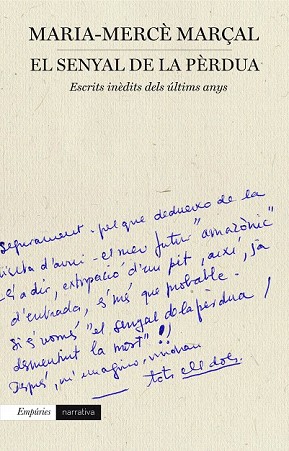 MARIA-MERCÈ MARÇAL
EL SENYAL DE LA PÈRDUA
Escrits inèdits dels últims anys
Segurament - pel que dedueixo de la
visita d'avui - el meu futur "amazònic"
-és a dir, extirpació d'un pit, així, ja
d'entrada, s'és més que probable.
Si és només "el senyal de la pèrdua /
desmentint la mort"!!
Després, m'imagino, vindran
tots els dols.
Empúries narrativa